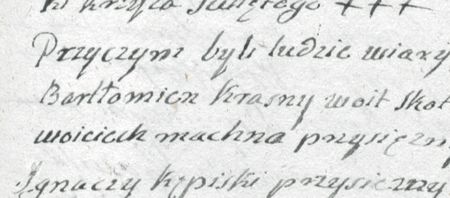 krzyża Swiętego +++
Przyczym byli ludzie wiary
Bartłomiey Krasny woit Skot
woiciech machna przysięzny
Jgnaczy Kępiski przysiezny